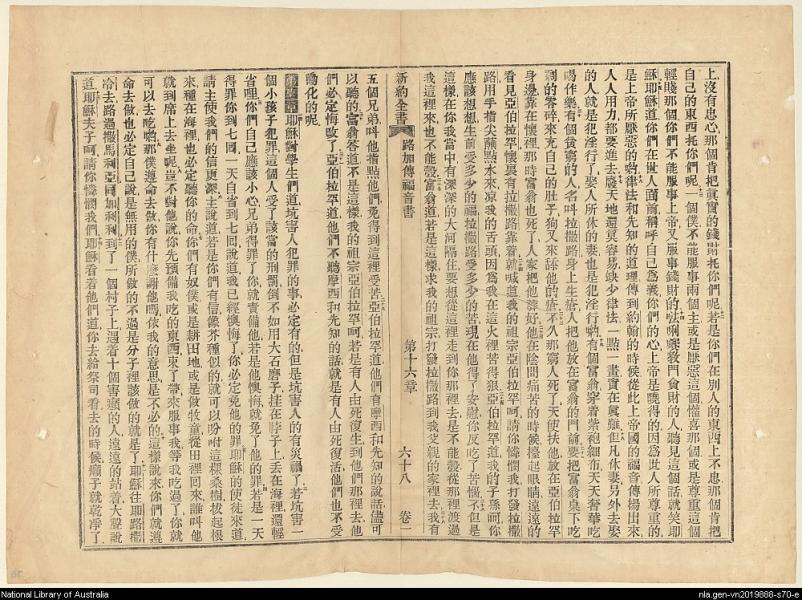 上沒有忠心、那個肯把眞實的錢財托你們呢、若是你們在別人的東西上、不忠、那個肯把
自己的東西托你們呢、一個僕不能服事兩個主、或是厭惡這個懽喜那個、或是尊重這個
輕賤那個、你們不能服事上帝、又服事錢財的、
穌耶穌道、你們在世人面前稱呼自己爲義、你們的心上帝是曉得的、因爲世人所尊重的、
是上帝所厭惡的
人人用力都要進去、廢天地還莫容易、缺少律法一點一畫、實在興難、但凡休妻另外去娶
的人、就是犯淫行了、娶人所休的妻、也是犯淫行喲、有個富翁穿着紫袍細布、天天奢華吃
喝作樂、有個貧窮的人名叫拉撒路、身上生瘡、人把他放在富翁的門前、要把富翁桌下吃
剩的零碎來充自己的肚子、狗又來餂他的瘡、不久那窮人死了、天使扶他放在亞伯拉罕
身邊靠在懷裡、那時富翁也死了、人家把他葬好、他在陰間痛苦的時候、擡起眼睛、遠遠的
看見亞伯拉罕懷裏有拉撒路靠着、就喊道、我的祖宗亞伯拉罕呵、請你憐憫我、打發拉撒
路用手指尖蘸點水、來凉我的舌頭、因爲我在這火裡苦得狠、亞伯拉罕道、我的子孫呵、你
應該想想生前受多少的福、拉撒路受多少的苦、現在他得了安慰、你反吃了苦惱、不但是
這樣、在你我當中、有深深的大河隔住、要想從這裡走到你那裡去、是不能彀、從那裡渡過
我這裡來、也不能彀、富翁道、若是這樣、求我的祖宗打發拉撒路到我父親的家裡去、我有
新約全書 路加傳福音書 第十六章 六十八 卷一
五個兄弟、叫他指點他們、免得到這裡受苦、亞伯拉罕道、他們有摩西和先知的說話、儘可
以聽的、富翁答道、不是這樣、我的祖宗亞伯拉罕呵、若是有人由死復生、到他們那裡去、他
們必定悔改了、亞伯拉罕道、他們不聽摩西和先知的話、就是有人由死復活、他們也不受
勸化的呢、
耶穌對學生們道、坑害人犯罪的事、必定有的、但是坑害人的有災禍了、若坑害一
個小孩子犯罪、這個人受了該當的刑罰、倒不如用大石磨子、挂在脖子上、丟在海裡、還輕
省哩、你們自己應該小心、兄弟得罪了你、就責備他、若是他懊悔、就免了他的罪、若是一天
得罪你到七回、一天自省到七回、說道、我已經懊悔了、你必定免他的罪、耶穌的使徒來道、
請主使我們的信更深、主說道、若是你們有信、像芥種似的、就可以吩咐這棵桑樹、拔起根
來、種在海裡、也必定聽你的命、你們有奴僕、或是耕田地、或是做牧童、從田裡回來、誰叫他
就到席上去坐呢、豈不對他說、你先預備我吃的東西、束了帶來服事我、等我吃過了、你就
可以去吃喲、那僕遵命去做、你有什麼謝他嗎、依我的意思、是不必的、這樣說來、你們就遵
命去做、也必定自己說是無用的僕、所做的不過是分子裡該做的就是了、耶穌往耶路撒
冷去、路過撒馬利亞同加利利、到了一個村子上、遇着十個害癩的人、遠遠的站着、大聲說
道、耶穌夫子呵、請你憐憫我們、耶穌看着他們道、你去給祭司看、去的時候、癩子就乾淨了、
National Library of Australia
nla.gen-vn2019888-s70-e